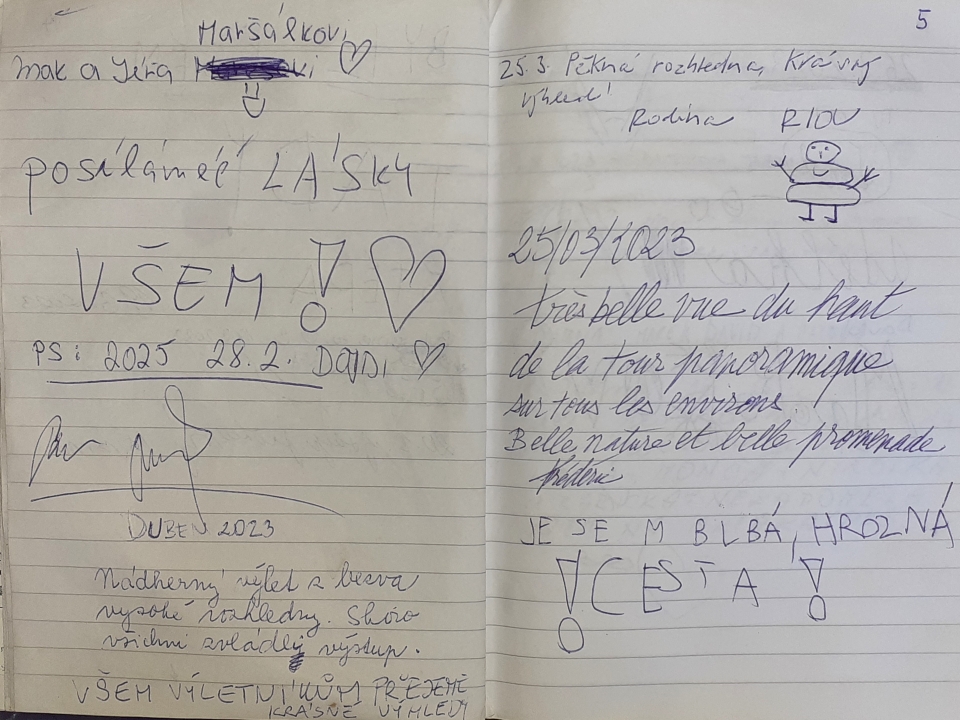 Maršálkovi
mak a Jéňa
posíláméé LÁSKY
VŠEM!
PS: 2025 28.2. DOJDI
DUBEN 2023
Nádherný výlet z bezva
vysoké rozhledny. Skoro
všichni zvládly výstup.
VŠEM VÝLETNÍKŮM PŘEJEME
KRÁSNÉ VÝHLEDY
5
25.3. Pěkná rozhledna, Krásný
výhled!
Rodina RIOU
25/03/2023
très belle vue du haut
de la tour panoramique
sur tous les environs.
Belle nature et belle promenade
Frédéric
JE SEM BLBÁ, HROZNÁ
! CESTA !